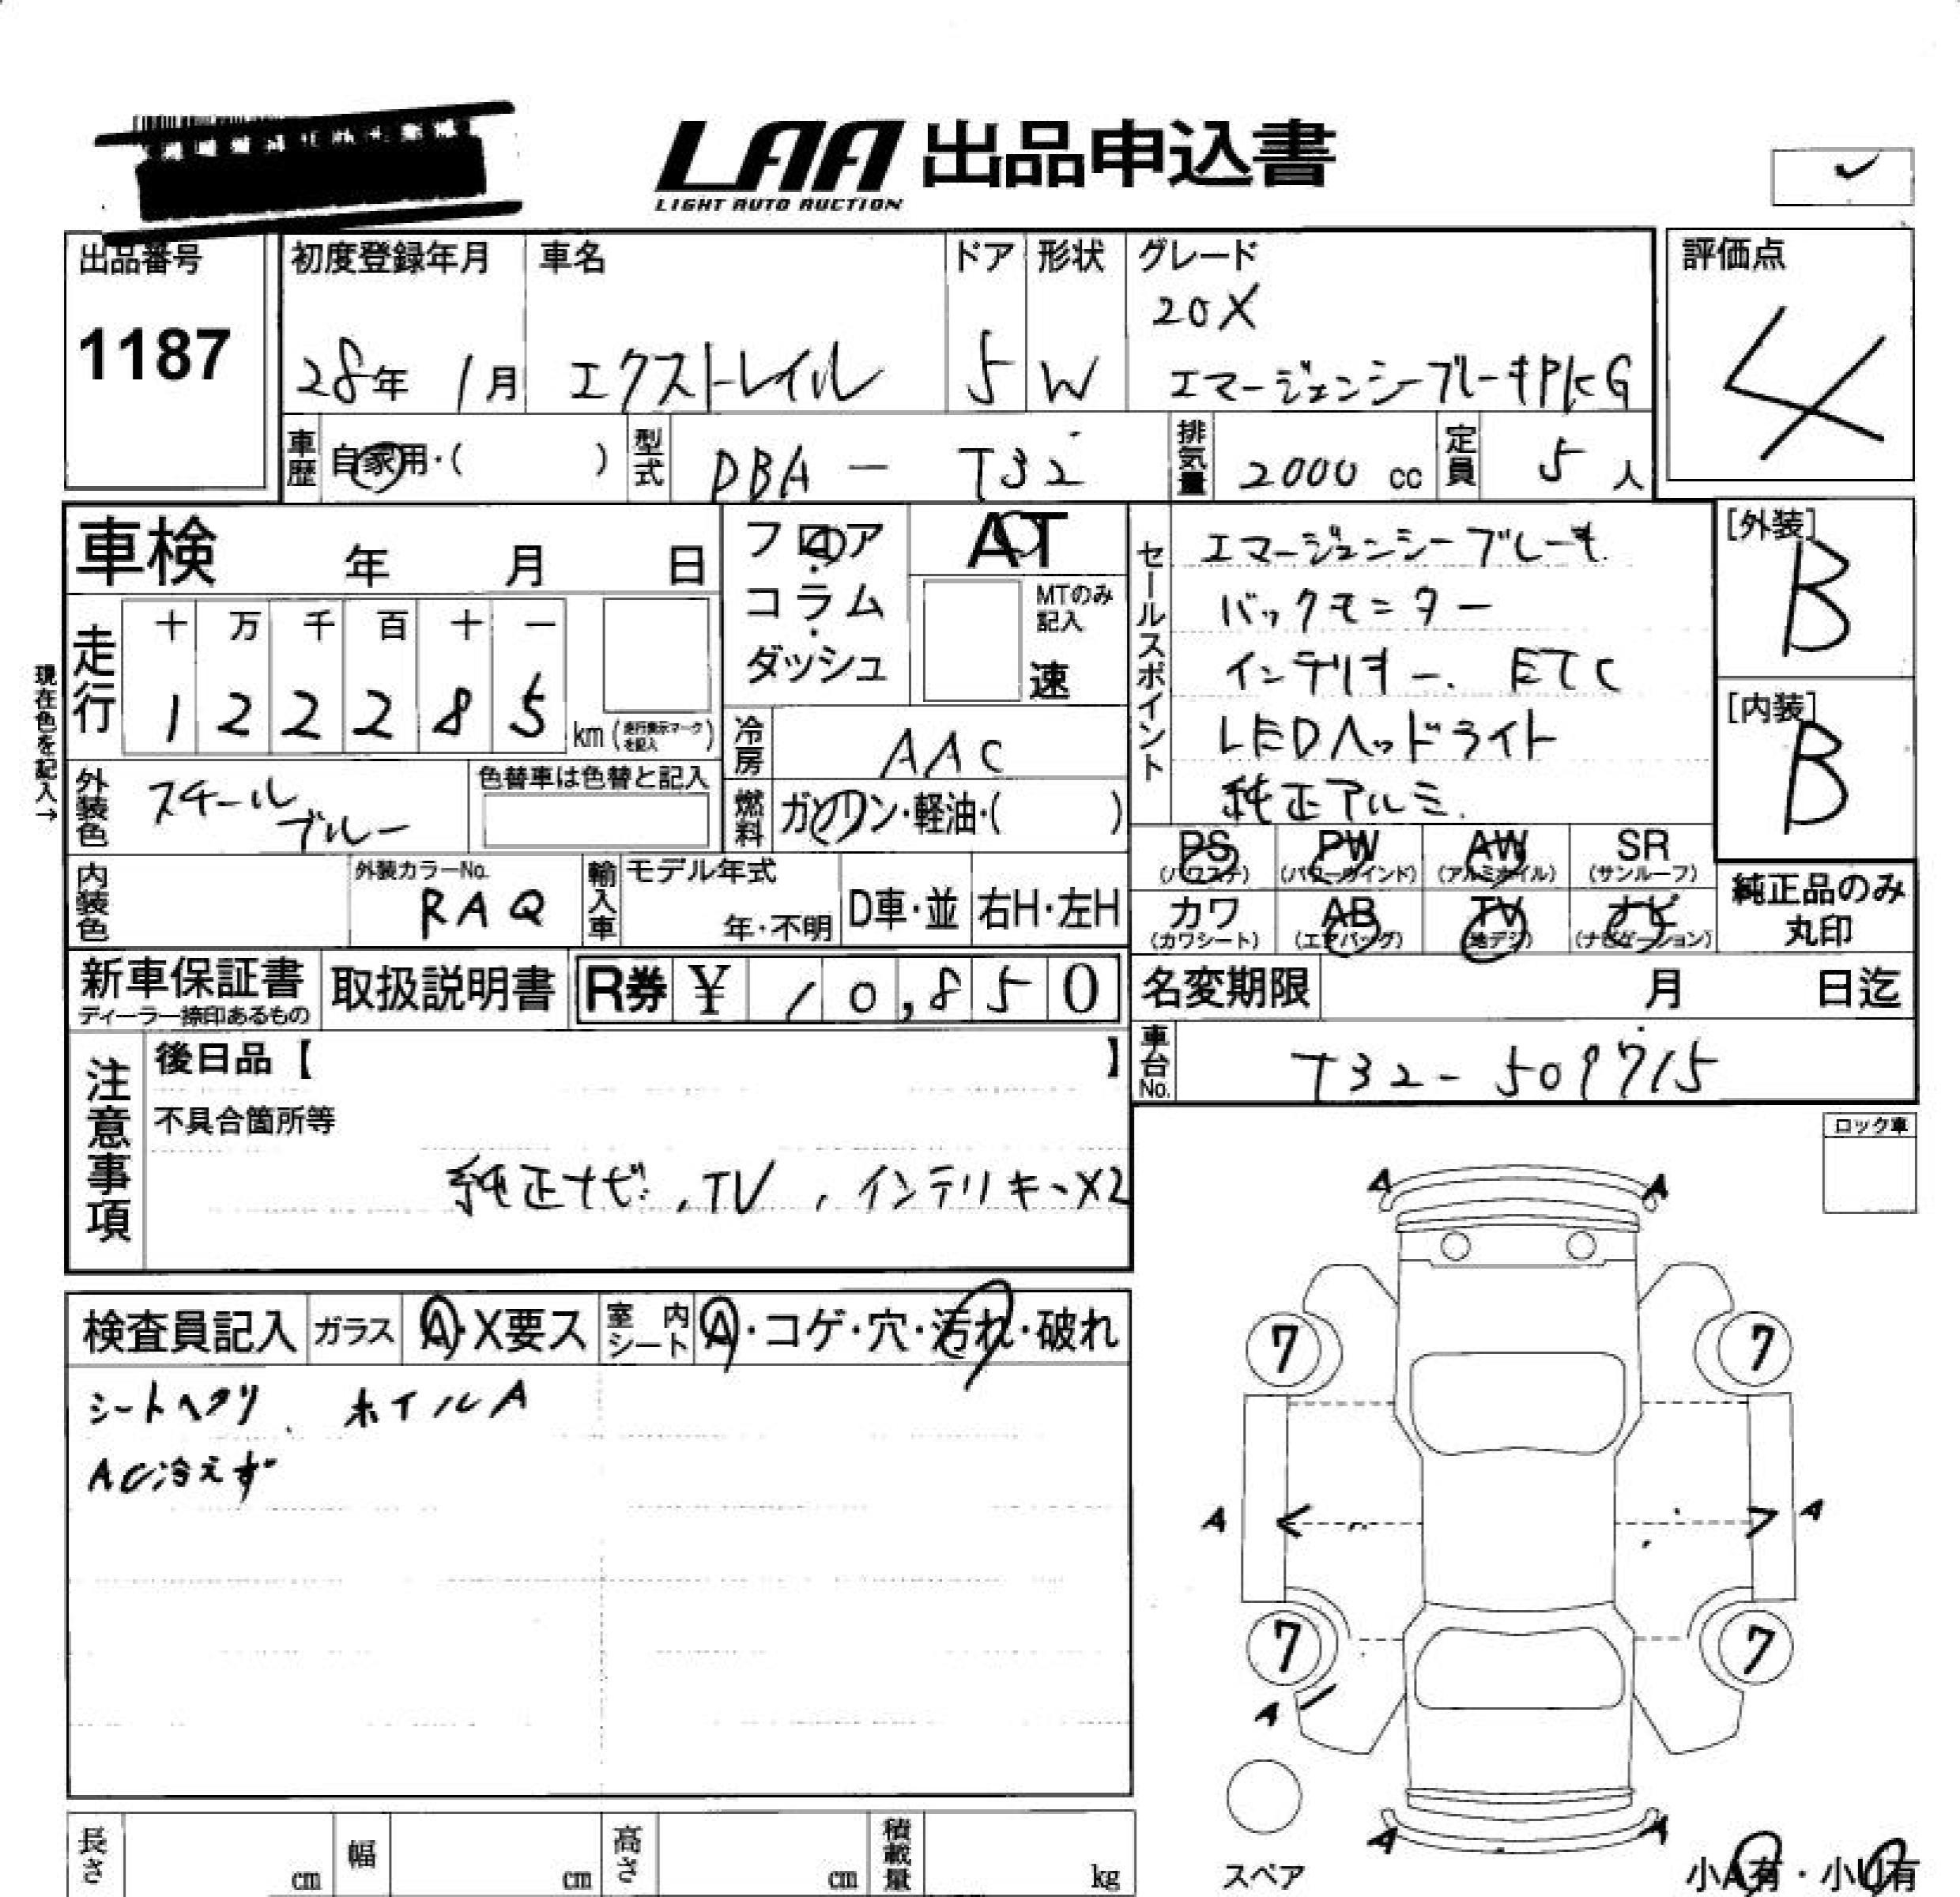 LAA 出品申込書
LIGHT AUTO AUCTION
出品番号
1187
初度登録年月
28年 1月
車名
エクストレイル
ドア
5
形状
W
グレード
20X
エマージェンシーブレーキPKG
評価点
4
車歴 自家用・( )
型式 DBA - T32
排気量 2000 cc
定員 5 人
車検 年 月 日
現在色を記入→
走行
十 万 千 百 十 一
1 2 2 2 8 5 km (走行表示マークを記入)
フロア・コラム・ダッシュ
AT
MTのみ記入
速
冷房 AAC
燃料 ガソリン・軽油・( )
セールスポイント
エマージェンシーブレーキ
バックモニター
インテリキー. ETC
LEDヘッドライト
純正アルミ.
[外装]
B
[内装]
B
外装色 スチールブルー
色替車は色替と記入
内装色
外装カラーNo.
RAQ
輸入車
モデル年式
年・不明
D車・並
右H・左H
PS (パワステ)
PW (パワーウインド)
AW (アルミホイル)
SR (サンルーフ)
カワ (カワシート)
AB (エアバッグ)
TV (地デジ)
ナビ (ナビゲーション)
純正品のみ丸印
新車保証書
ディーラー捺印あるもの
取扱説明書
R券 ¥ 10,850
名変期限 月 日迄
車台No. T32-509715
注意事項
後日品【 】
不具合箇所等
純正ナビ, TV, インテリキーX2
ロック車
検査員記入
ガラス A・X要ス
室内シート A・コゲ・穴・汚れ・破れ
シートヘタリ、ホイルA
AC冷えず
A A
7 7
A A
7 7
A
A A
スペア
小A有・小U有
長さ cm
幅 cm
高さ cm
積載量 kg